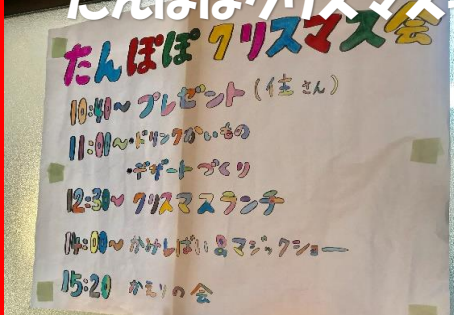 たんぽぽクリスマス
たんぽぽ クリスマス会
10:40～ プレゼント(佳さん)
11:00～・ドリンクかいもの
・デザートづくり
12:30～ クリスマスランチ
14:00～ かみしばい&マジックショー
15:20 かえりの会